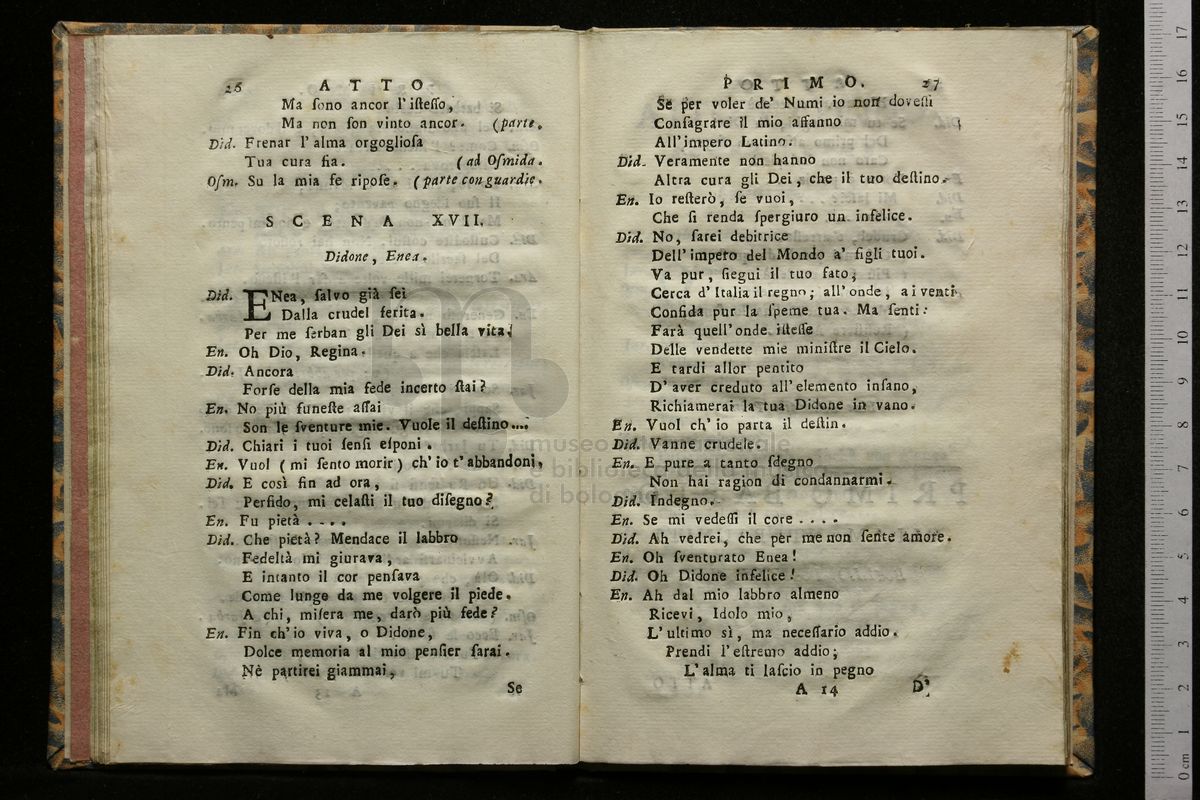 26 A T T O
Ma ſono ancor l'iſteſſo,
Ma non ſon vinto ancor. (parte.
Did. Frenar l'alma orgoglioſa
Tua cura fia. (ad Oſmida.
Oſm. Su la mia fe ripoſe. (parte con guardie.
S C E N A XVII.
Didone, Enea.
Did. ENea, ſalvo già ſei
Dalla crudel ferita.
Per me ſerban gli Dei sì bella vita.
En. Oh Dio, Regina.
Did. Ancora
Forſe della mia fede incerto ſtai?
En. No più funeſte aſſai
Son le ſventure mie. Vuole il deſtino....
Did. Chiari i tuoi ſenſi eſponi.
En. Vuol (mi ſento morir) ch'io t'abbandoni,
Did. E così fin ad ora,
Perfido, mi celaſti il tuo diſegno?
En. Fu pietà . . . .
Did. Che pietà? Mendace il labbro
Fedeltà mi giurava,
E intanto il cor penſava
Come lunge da me volgere il piede.
A chi, miſera me, darò più fede?
En. Fin ch'io viva, o Didone,
Dolce memoria al mio penſier ſarai.
Nè partirei giammai,
Se
P R I M O. 27
Se per voler de' Numi io non doveſſi
Conſagrare il mio affanno
All'impero Latino.
Did. Veramente non hanno
Altra cura gli Dei, che il tuo deſtino.
En. Io reſterò, ſe vuoi,
Che ſi renda ſpergiuro un infelice.
Did. No, ſarei debitrice
Dell'impero del Mondo a' figli tuoi.
Va pur, ſiegui il tuo fato;
Cerca d'Italia il regno; all'onde, ai venti
Confida pur la ſpeme tua. Ma ſenti:
Farà quell'onde iſteſſe
Delle vendette mie miniſtre il Cielo.
E tardi allor pentito
D'aver creduto all'elemento inſano,
Richiamerai la tua Didone in vano.
En. Vuol ch'io parta il deſtin.
Did. Vanne crudele.
En. E pure a tanto ſdegno
Non hai ragion di condannarmi.
Did. Indegno.
En. Se mi vedeſſi il core . . . .
Did. Ah vedrei, che per me non ſente amore.
En. Oh ſventurato Enea!
Did. Oh Didone infelice!
En. Ah dal mio labbro almeno
Ricevi, Idolo mio,
L'ultimo sì, ma neceſſario addio.
Prendi l'eſtremo addio;
L'alma ti laſcio in pegno
A 14 D'
museo
e biblio
di bolo
0 cm 1 2 3 4 5 6 7 8 9 10 11 12 13 14 15 16 17